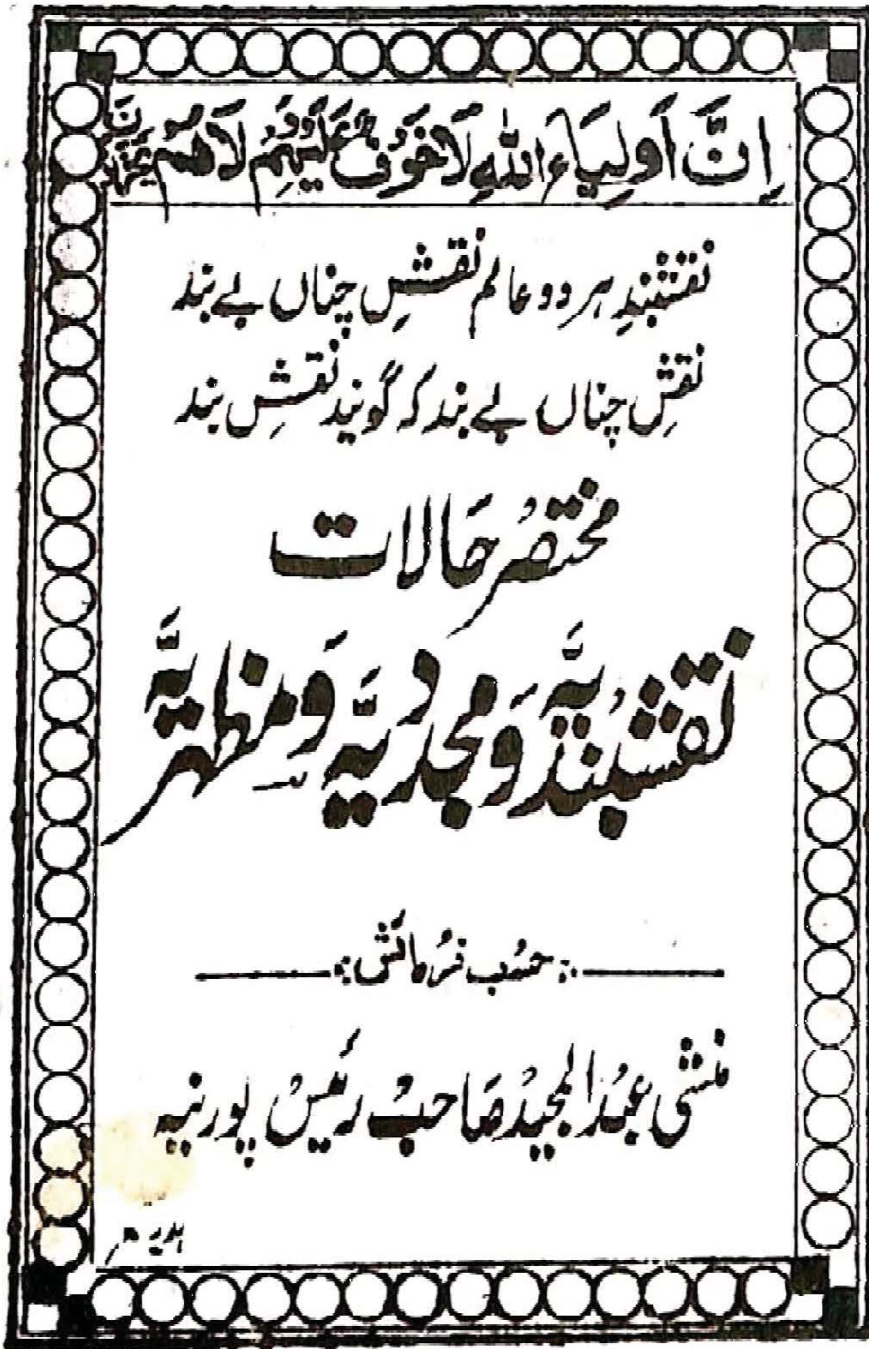 اِنَّ اَولِیَاءَ اللّٰہِ لَا خَوْفٌ عَلَیْہِمْ لَا ھُمْ یَحْزَنُوْنَ
نقشبندِ ہر دو عالم نقشِ چناں بے بند
نقشِ چناں بے بند کہ گویند نقشِ بند
مختصرُ حَالات
نقشبُندیہَّ وَ مجددیہَّ وَ مظہریہَّ
حسُب فرمائش
منشی عبدُالمجیدُ صَاحبُ رئیسُ پورنیہ